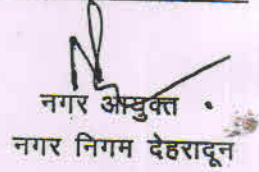 नगर आयुक्त
नगर निगम देहरादून